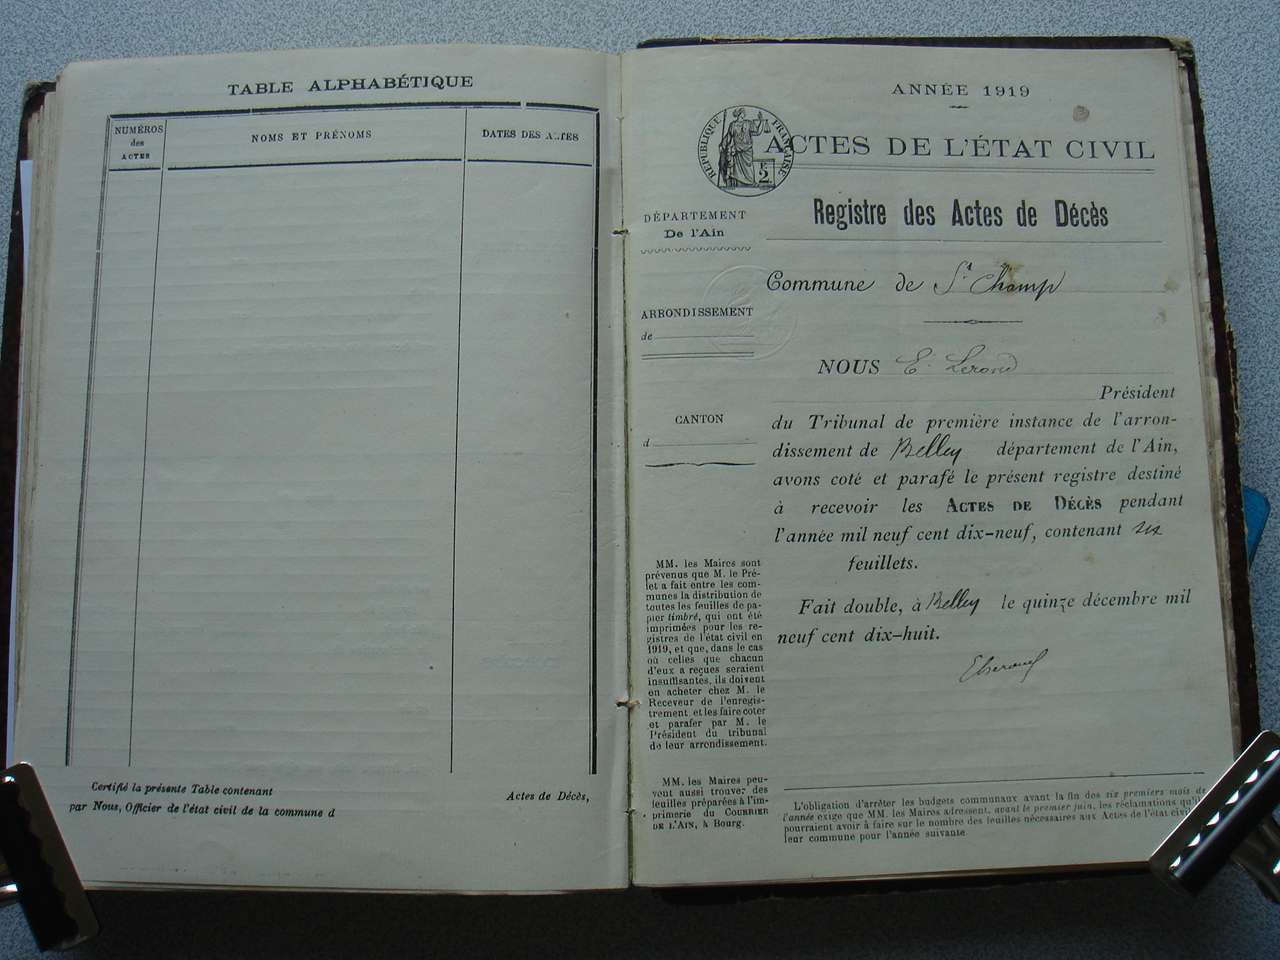 TABLE ALPHABÉTIQUE
NUMÉROS
des
ACTES
NOMS ET PRÉNOMS
DATES DES ACTES
Certifié la présente Table contenant
Actes de Décès,
par Nous, Officier de l'état civil de la commune d
ANNÉE 1919
RÉPUBLIQUE FRANÇAISE
2
ACTES DE L'ÉTAT CIVIL
Registre des Actes de Décès
DÉPARTEMENT
De l'Ain
ARRONDISSEMENT
de
CANTON
d
MM. les Maires sont
prévenus que M. le Pré-
fet a fait entre les com-
munes la distribution de
toutes les feuilles de pa-
pier timbré, qui ont été
imprimées pour les re-
gistres de l'état civil en
1919, et que, dans le cas
où celles que chacun
d'eux a reçues seraient
insuffisantes, ils doivent
en acheter chez M. le
Receveur de l'enregis-
trement, et les faire coter
et parafer par M. le
Président du tribunal
de leur arrondissement.
MM. les Maires peu-
vent aussi trouver des
feuilles préparées à l'im-
primerie du COURRIER
DE L'AIN, à Bourg.
Commune de St Champ
NOUS E.
Président
du Tribunal de première instance de l'arron-
dissement de Belley département de l'Ain,
avons coté et parafé le présent registre destiné
à recevoir les ACTES DE DÉCÈS pendant
l'année mil neuf cent dix-neuf, contenant six
feuillets.
Fait double, à Belley le quinze décembre mil
neuf cent dix-huit.
L'obligation d'arrêter les budgets communaux avant la fin des six premiers mois de
l'année exige que MM. les Maires adressent, avant le premier juin, les réclamations qu'il
pourraient avoir à faire sur le nombre des feuilles nécessaires aux Actes de l'état civil
leur commune pour l'année suivante